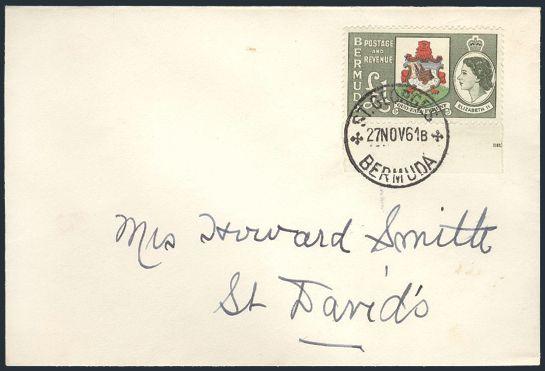 BERMUDA
POSTAGE
AND
REVENUE
£1
ELIZABETH II
ST. GEORGES
27NOV61B
BERMUDA
Mrs Howard Smith
St David's